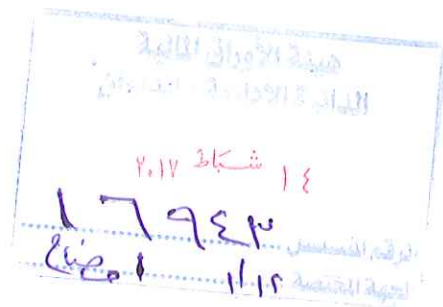 هيئة الأوراق المالية
الدائرة الإدارية / الديوان
١٤ شباط ٢٠١٧
الرقم المتسلسل ١٦٩٤٣
الجهة المختصة ١١/١٢ افصاح